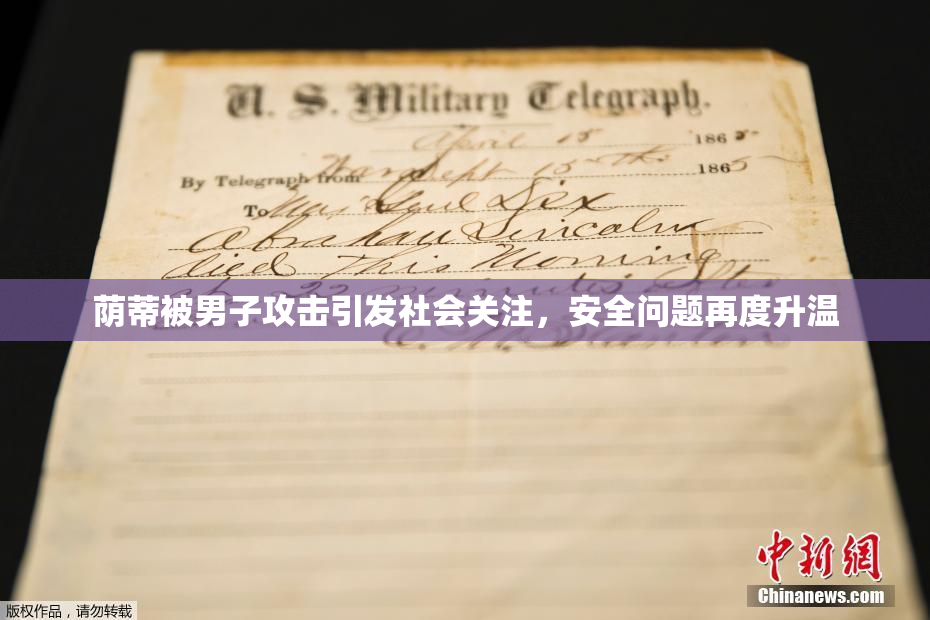 U. S. Military Telegraph.
April 15 1865
By Telegraph from War Dept 15th 1865
To Maj Genl Dix
Abraham Lincoln
died This Morning
at 22 minutes after
荫蒂被男子攻击引发社会关注，安全问题再度升温
E. M. Stanton
中新网
Chinanews.com
版权作品，请勿转载